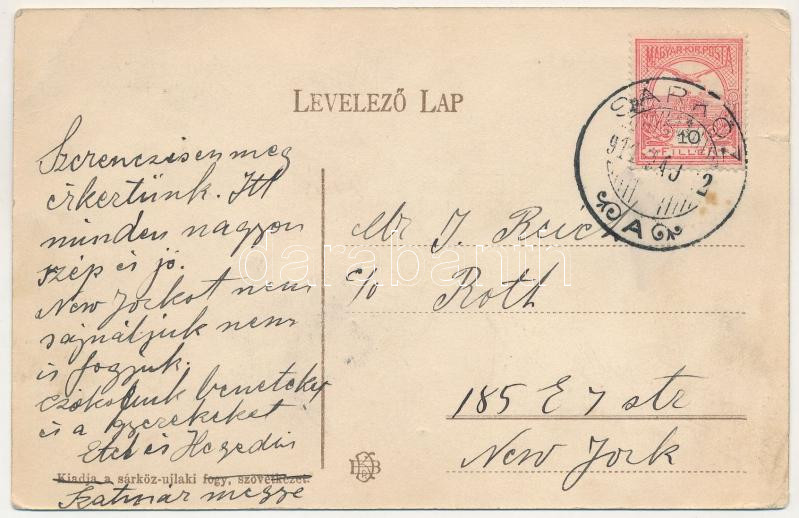 LEVELEZŐ LAP
MAGYAR KIR. POSTA
10
FILLÉR
SÁRKÖZ
912 MÁJ 2
A
Szerencsésen meg
érkertünk. Itt
minden nagyon
szép és jó.
New Yorkot nem
sajnáljuk nem
is fogjuk.
csókolunk beneteket
és a gyerekeket
Etel és Hegedüs
Szatmár megye
Mr J. Reich
c/o Roth
185 E 7 str
New York
Kiadja a sárköz-ujlaki fogy. szövetkezet.
darabanth.com